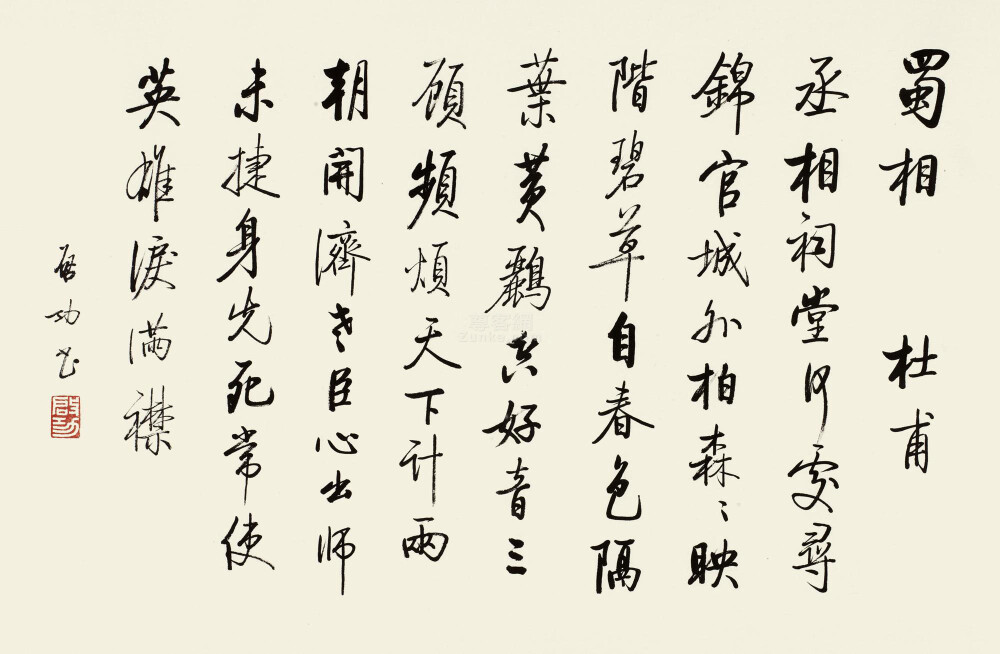 蜀相 杜甫
丞相祠堂何處尋
錦官城外柏森〻映
階碧草自春色隔
葉黄鸝空好音三
顧頻煩天下計兩
朝開濟老臣心出師
未捷身先死常使
英雄淚滿襟
啓功書
啟功
尊客網